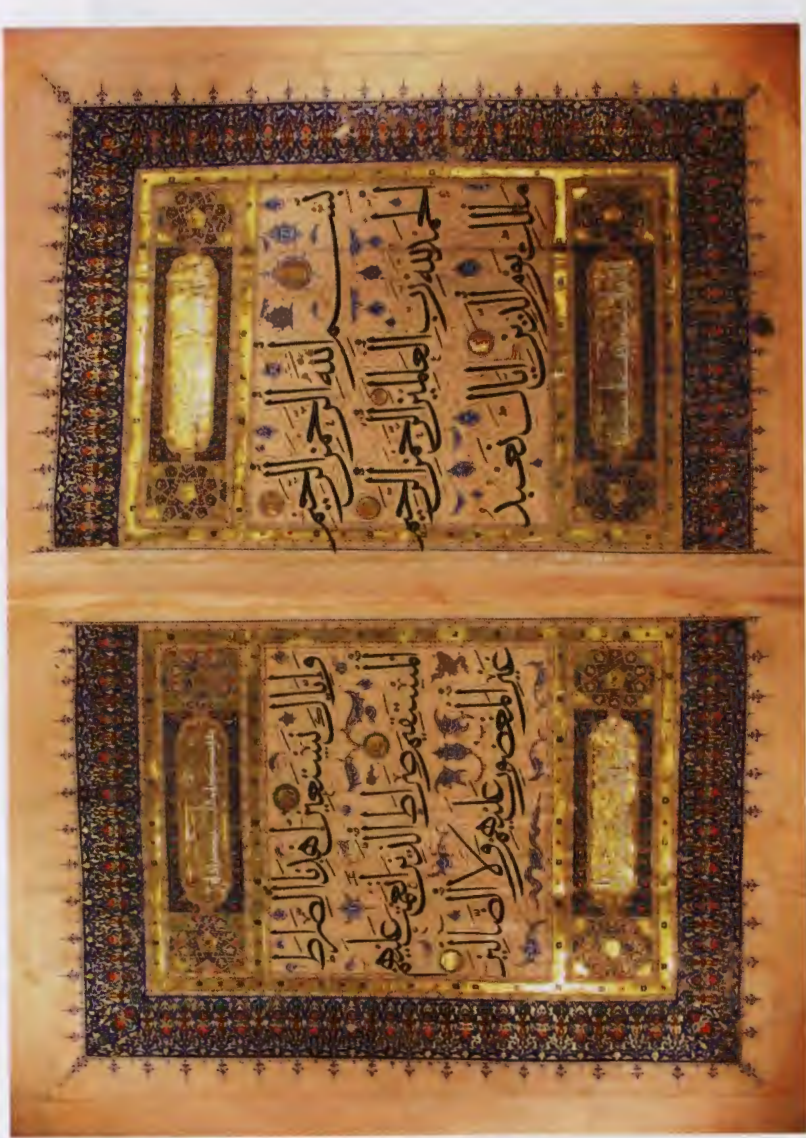 بسم الله الرحمن الرحيم
الحمد لله رب العلمين الرحمن الرحيم
ملك يوم الدين اياك نعبد
واياك نستعين اهدنا الصراط
المستقيم صراط الذين انعمت عليهم
غير المغضوب عليهم ولا الضالين